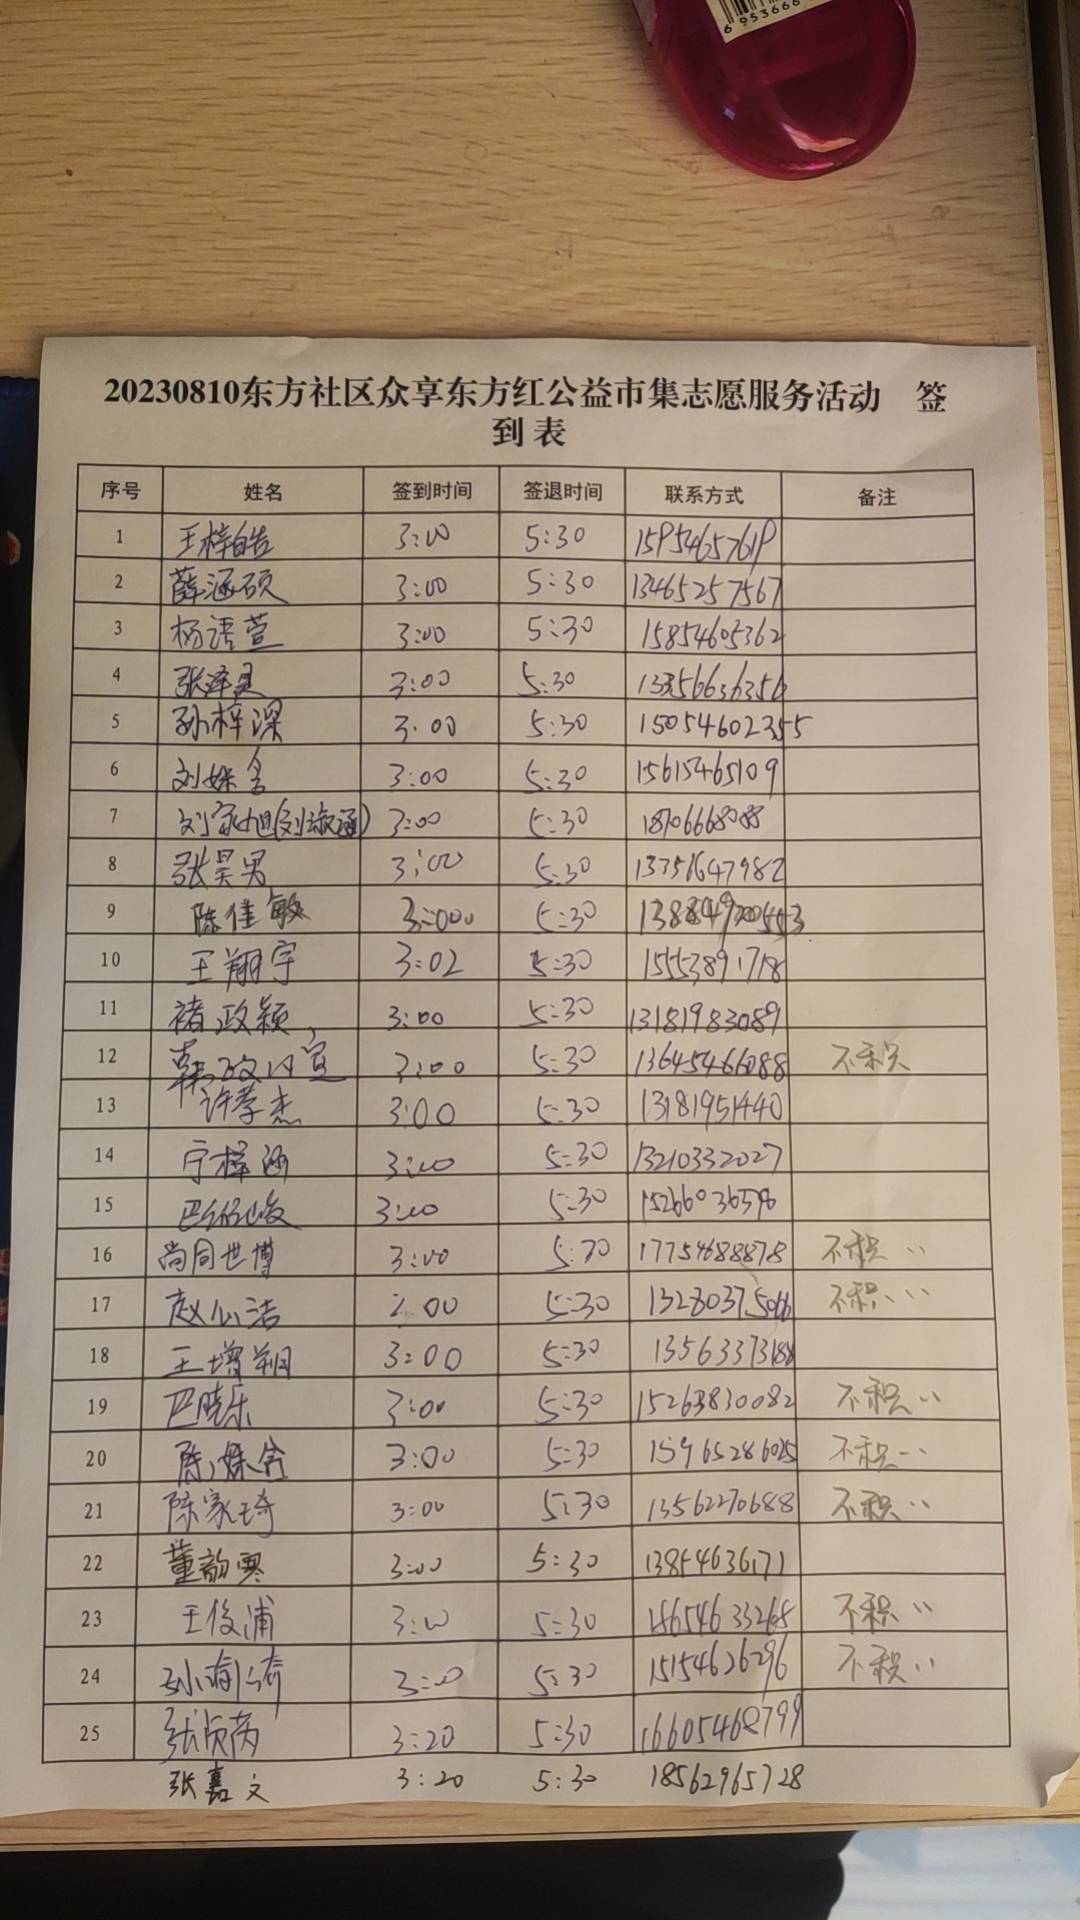 6 953666
20230810东方社区众享东方红公益市集志愿服务活动 签
到 表
序号 姓名 签到时间 签退时间 联系方式 备注
1 王梓皓 3:00 5:30 15954657619
2 薛涵硕 3:00 5:30 13465257567
3 杨语萱 3:00 5:30 15854605362
4 张泽昊 3:00 5:30
5 孙梓深 3:00 5:30 15054602355
6 刘姝含 3:00 5:30 15615465109
7 3:00 5:30 18706668088
8 张昊男 3:00 5:30 13751647982
9 陈佳敏 3:00 5:30
10 王翔宇 3:02 5:30 15553891718
11 褚政颖 3:00 5:30 13181983089
12 3:00 5:30 13645466088 不积
13 许孝杰 3:00 5:30 13181951440
14 宁梓涵 3:00 5:30 13210332027
15 3:00 5:30 15266036576
16 尚同世博 3:00 5:30 17754688878 不积..
17 赵心洁 3:00 5:30 不积...
18 王增翔 3:00 5:30 13563373188
19 巴晓乐 3:00 5:30 15263830082 不积..
20 陈姝含 3:00 5:30 15965286025 不积..
21 陈家琦 3:00 5:30 13562270688 不积..
22 董韵寒 3:00 5:30 13854636171
23 王俊浦 3:00 5:30 18654633268 不积..
24 3:00 5:30 15154626296 不积..
25 3:20 5:30 16605468799
张嘉文 3:20 5:30 18562965728